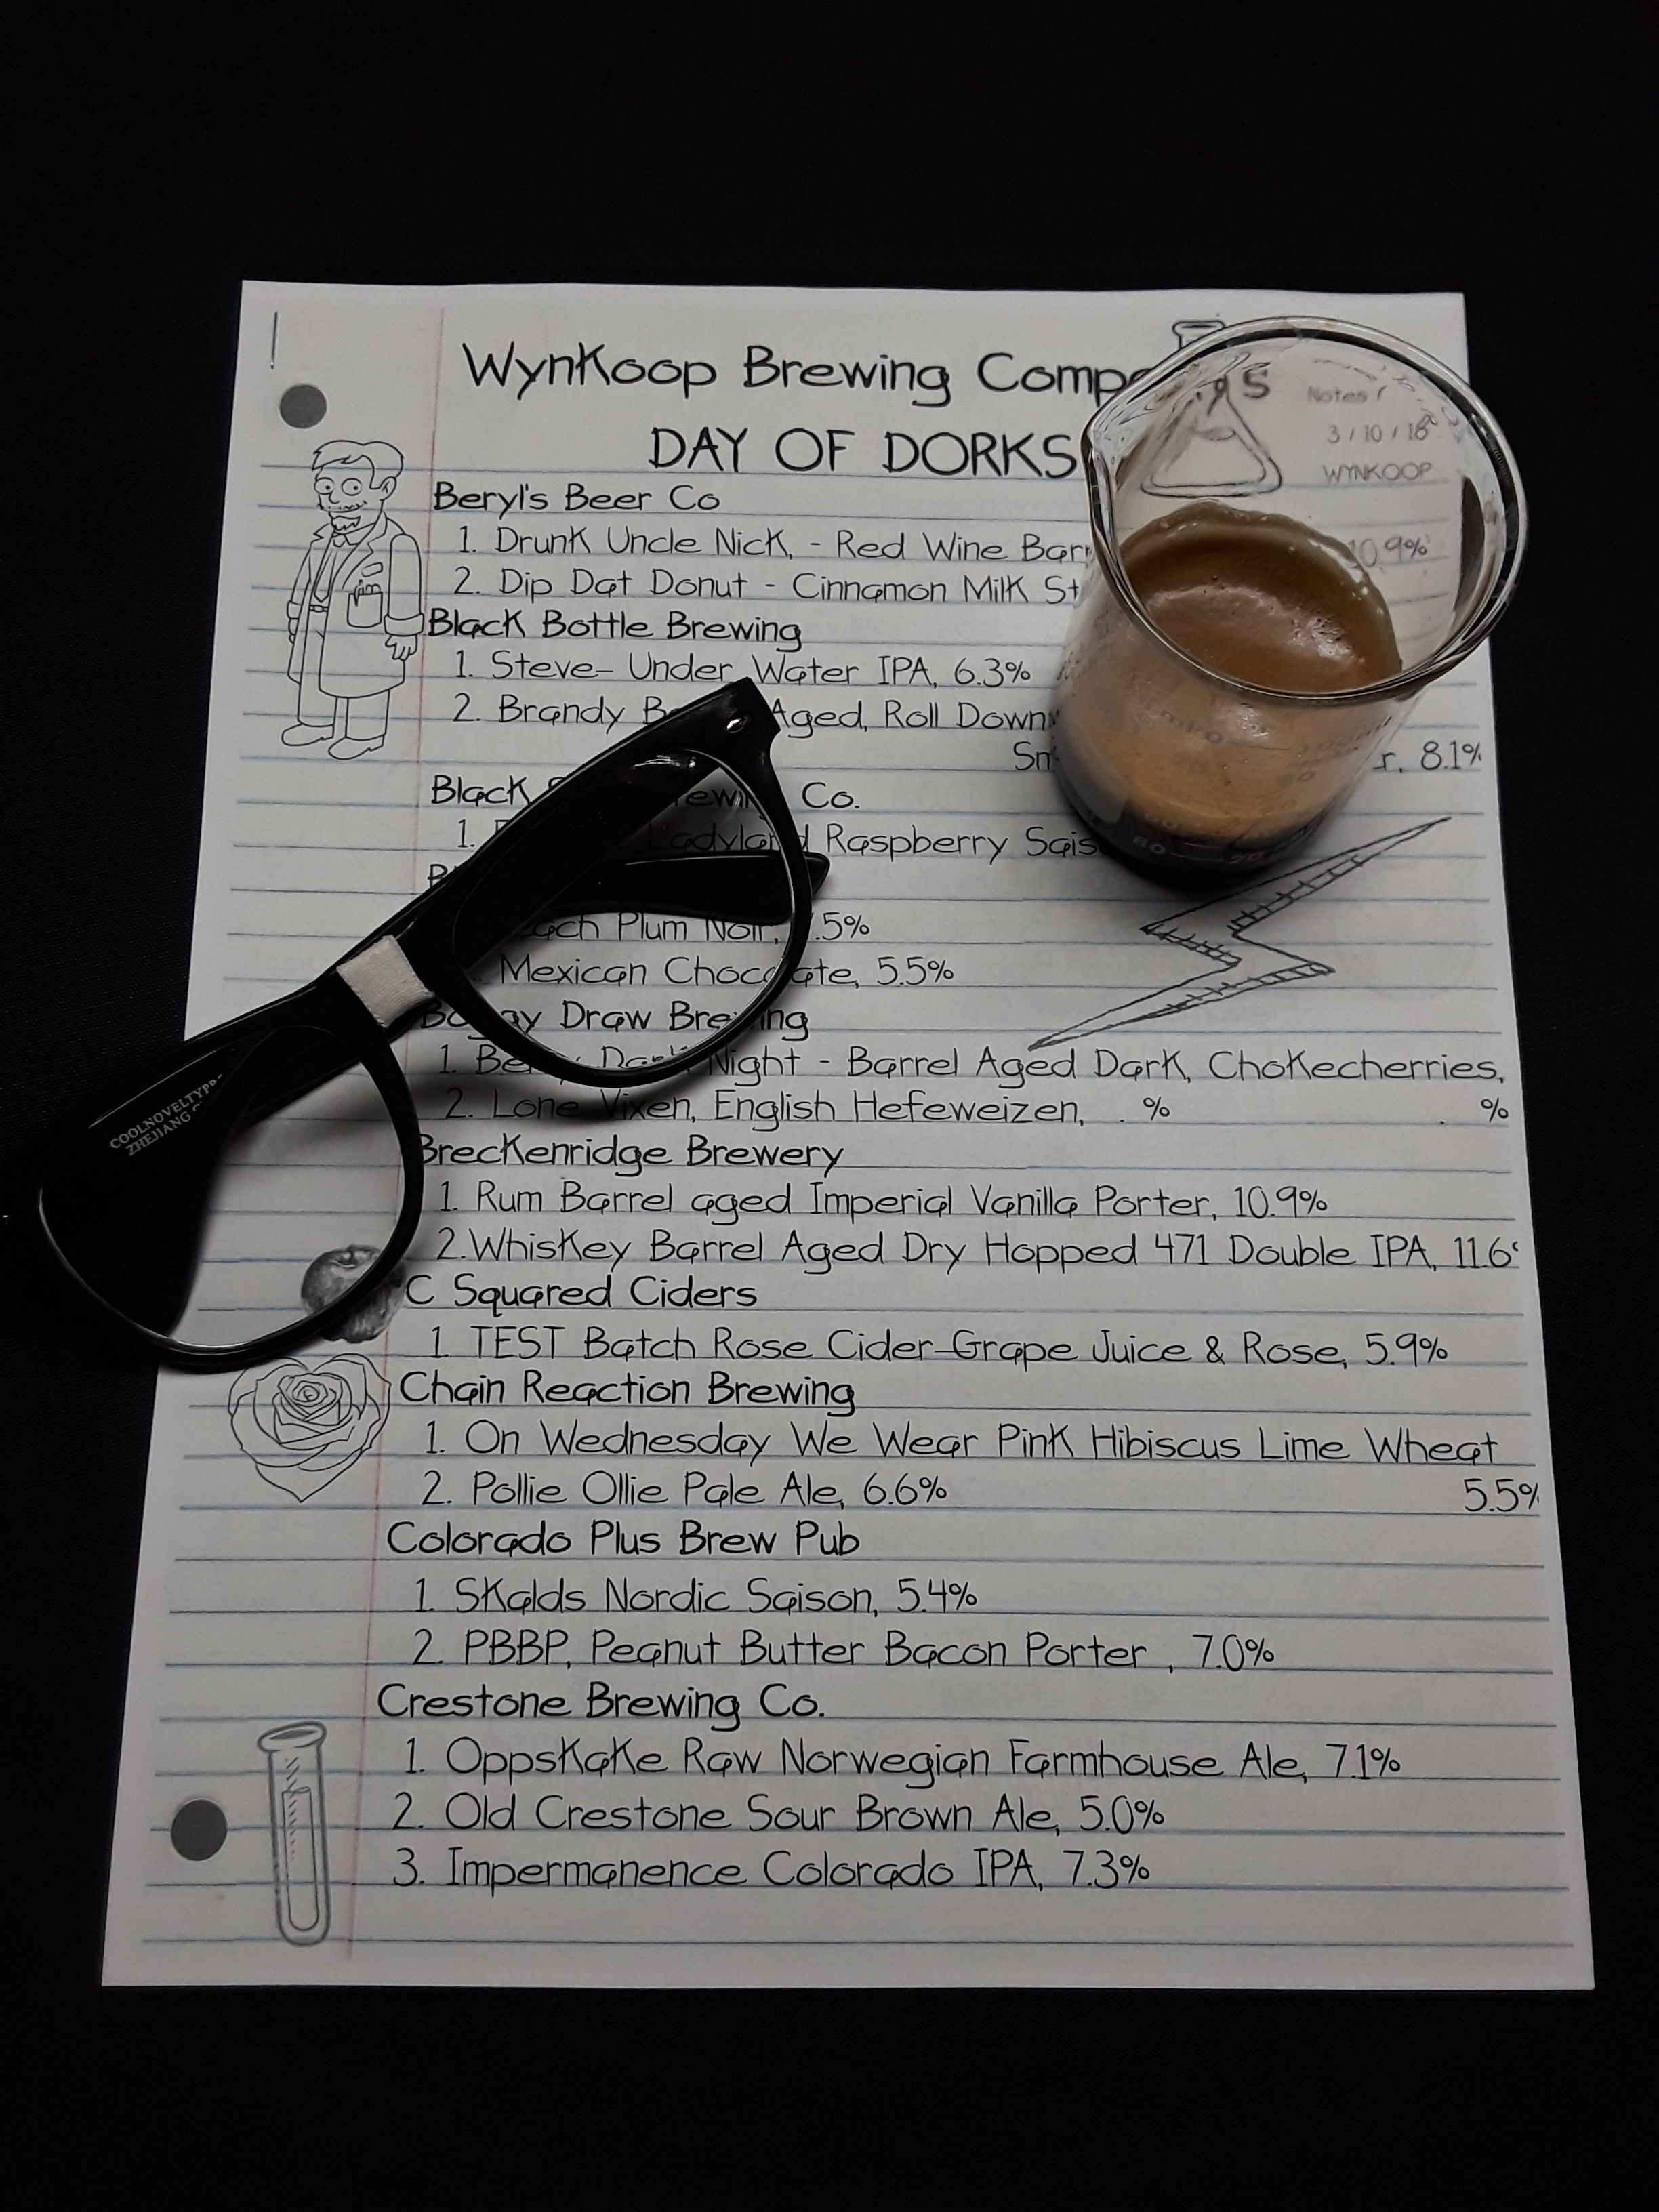 WynKoop Brewing
Notes /
3 / 10 / 18
WYNKOOP
DAY OF DORKS
Beryl's Beer Co
1. Drunk Uncle Nick, - Red Wine 10.9%
2. Dip Dat Donut - Cinnamon Milk
Black Bottle Brewing
1. Steve- Under Water IPA, 6.3%
2. Brandy Aged, Roll Down
8.1%
Black Co.
1. Ladyland Raspberry
Plum Noir, .5%
Mexican Chocolate, 5.5%
Draw Brewing
1. Dark Night - Barrel Aged Dark, Chokecherries,
2. Lone Vixen, English Hefeweizen, . % . %
Breckenridge Brewery
1. Rum Barrel aged Imperial Vanilla Porter, 10.9%
2.Whiskey Barrel Aged Dry Hopped 471 Double IPA, 11.6
C Squared Ciders
1. TEST Batch Rose Cider-Grape Juice & Rose, 5.9%
Chain Reaction Brewing
1. On Wednesday We Wear Pink Hibiscus Lime Wheat
2. Pollie Ollie Pale Ale, 6.6% 5.5%
Colorado Plus Brew Pub
1. Skalds Nordic Saison, 5.4%
2. PBBP, Peanut Butter Bacon Porter , 7.0%
Crestone Brewing Co.
1. Oppskake Raw Norwegian Farmhouse Ale, 7.1%
2. Old Crestone Sour Brown Ale, 5.0%
3. Impermanence Colorado IPA, 7.3%
ZHEJIANG